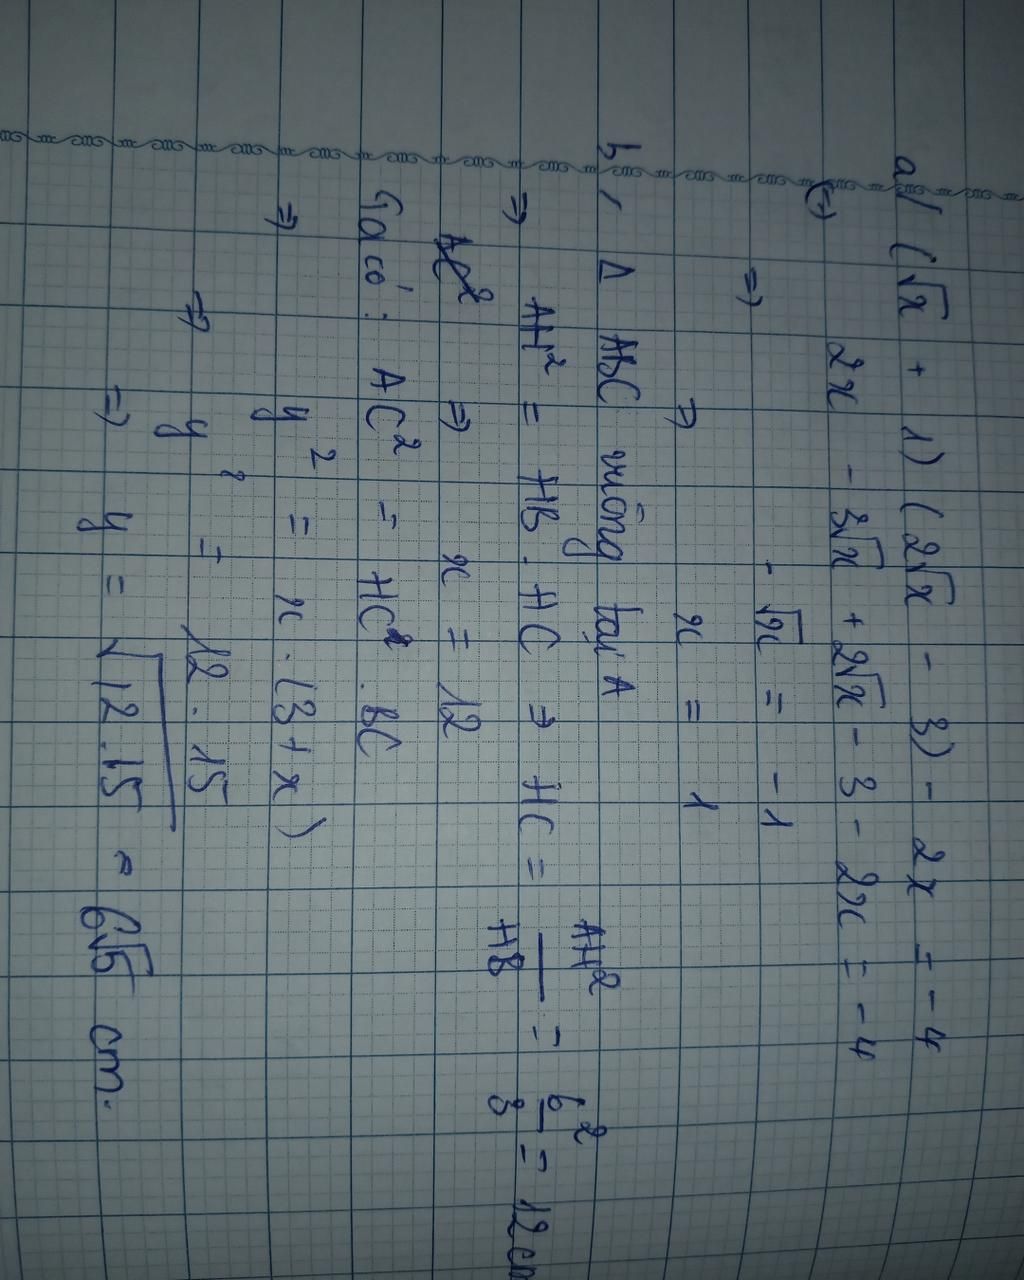 a/ (√x + 1)(2√x - 3) - 2x = -4
(⇒) 2x - 3√x + 2√x - 3 - 2x = -4
⇒ -√x = -1
⇒ x = 1
b, Δ ABC vuông tại A
⇒ AH² = HB . HC ⇒ HC = AH²/HB = 6²/3 = 12cm
⇒ x = 12
Ta có: AC² = HC . BC
⇒ y² = x . (3 + x)
⇒ y² = 12 . 15
⇒ y = √12.15 = 6√5 cm.